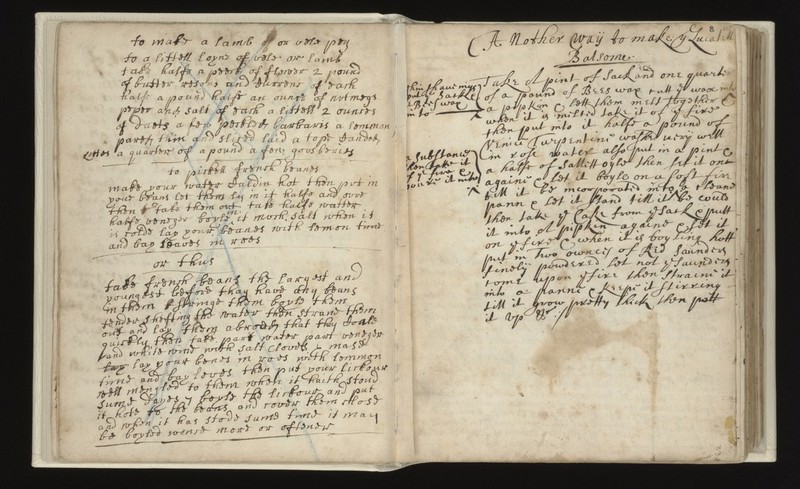 to make a lamb or vele pey
to a littell loyne of vele or lamb
take halfe a peck of flower 2 pound
of butter resons and Currens of each
halfe a pound halfe an ounce of nutmegs
peper and salt of each a littell 2 ounces
of daets a few perserved barbaris a lemmon
thin and slized laid a tope
a quarter of a pound a few goosberies
to pickell french beanes
make your water scaldin hot then put in
your beans let them ly in it halfe and ovre
then take them out take halfe watter
halfe veneger boyle in it much salt when it
is colde lay your beanes with lemon time
and bay leaves in roes
or thus
take french beans the largest and
youngest before thay have any beans
in them & stringe them boyle them
tender shefting the water then strane them
out and lay them abroad that thy coale
quickly then take part water part veneger
and white wine with salt Cloves & mase
lay your benes in roes with lemmon
time and bay leves then put your lickour
well mengled to them when it hath stood
sume dayes boyle the lickour and put
it hote to the beans and cover them close
and when it has stode sume time it may
be boyled wence more or oftener
8
A Nother Way to make y Lucatell
Balsome
Take A pint of Sack and one quarter
of a pound of Bees wax cutt y wax into
a pipkin & lett them melt together
when it is milted take it of y fire
then put into it halfe a pound of
Venice Turpentine washt very well
in rose water also put in a pint &
a halfe of Sallitt oyle then sit it one
againe & let it boyle on a soft fire
till it be incorporated into a
pann & let it stand till it be could
then take y Cake from y sack & putt
it into A pipkin againe & set it
on y fire & when it is boyling hott
put in two ounces of Red Saunders
finely powdered let not y Saunders
come upon y fire then straine it
into a panne & keepe it stirring
till it grow pretty thick then pott
it up &c
into
A Substance
then take it
of y fire &
poure it into